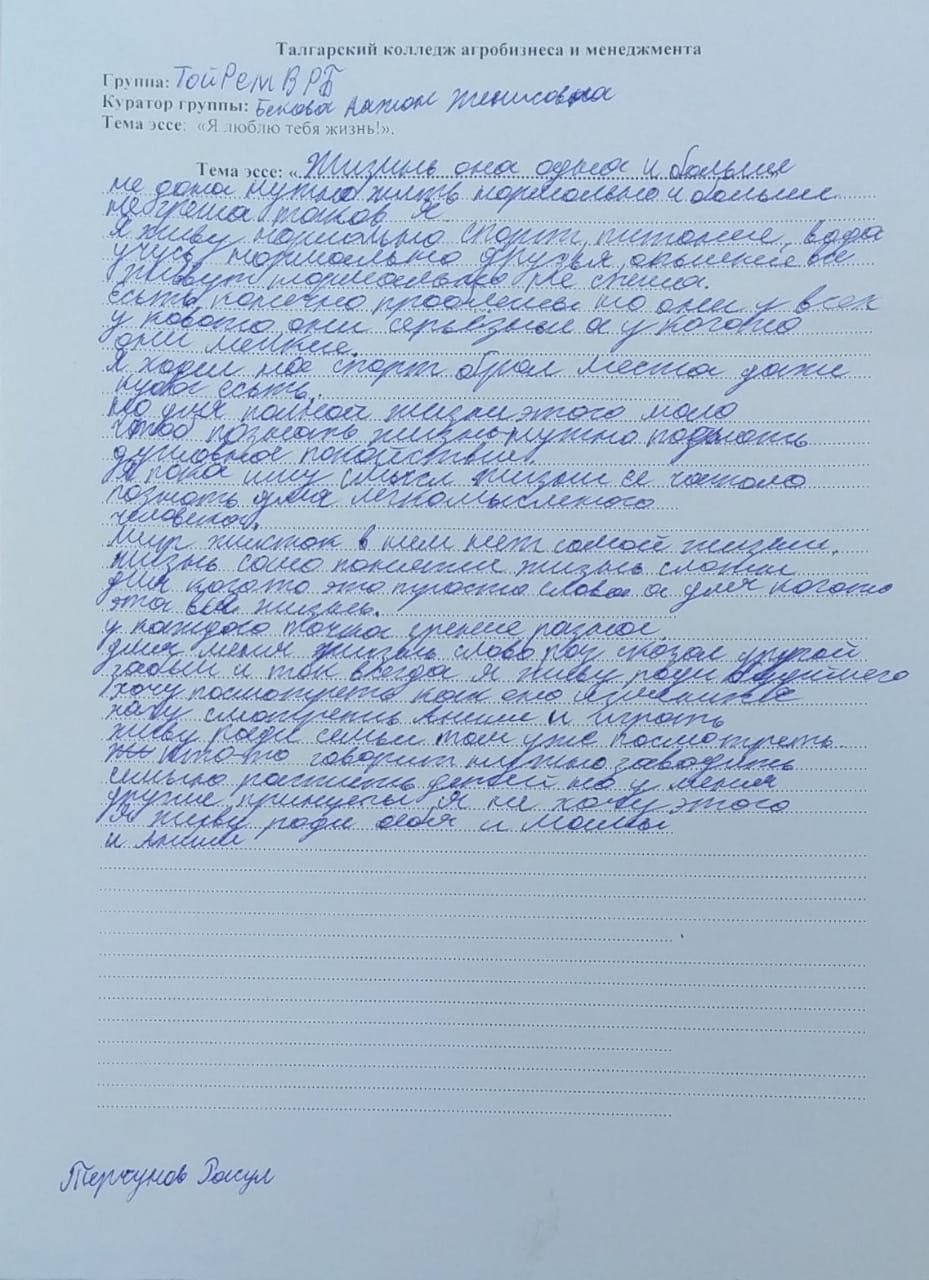 Талгарский колледж агробизнеса и менеджмента
Группа: ТОиРемВРБ
Куратор группы: Бекова Женисовна
Тема эссе: «Я люблю тебя жизнь!».
Тема эссе: «. Жизинь она одна и больше
не дана нужно жить нормально и больши
не греша таков Я
Я живу нормально спорт, питание, вода
учусь нормально друзья, все
живут нормально не спеша.
Есть конечно проблемы но они у всех
у кового они серьёзные а у когото
они мелкие.
Я ходил на спорт брал места даже
кубок есть.
но для полной жизни этого мало
чтоб познать жизнь нужно
духовное покойствие.
Я пока ищу смысл жизни её
познать для легкомысленого
человека.
Мир жисток в нем нет самой жизни.
жизнь само поняти жизнь сложн
для когото это просто слово а для когото
эта вся жизнь.
у каждого точка зрение разное.
для меня жизнь слово раз сказал другой
забыл и так всегда я живу ради будущего
хочу посмотреть как оно изменится
хочу смотреть Аниме и играть
живу ради семьи там уже посмотреть
кто-то говорит нужно заводить
семью растить детей но у меня
другие принцепы Я не хочу этого
Я живу ради себя и Мамы
и Аниме
Расул